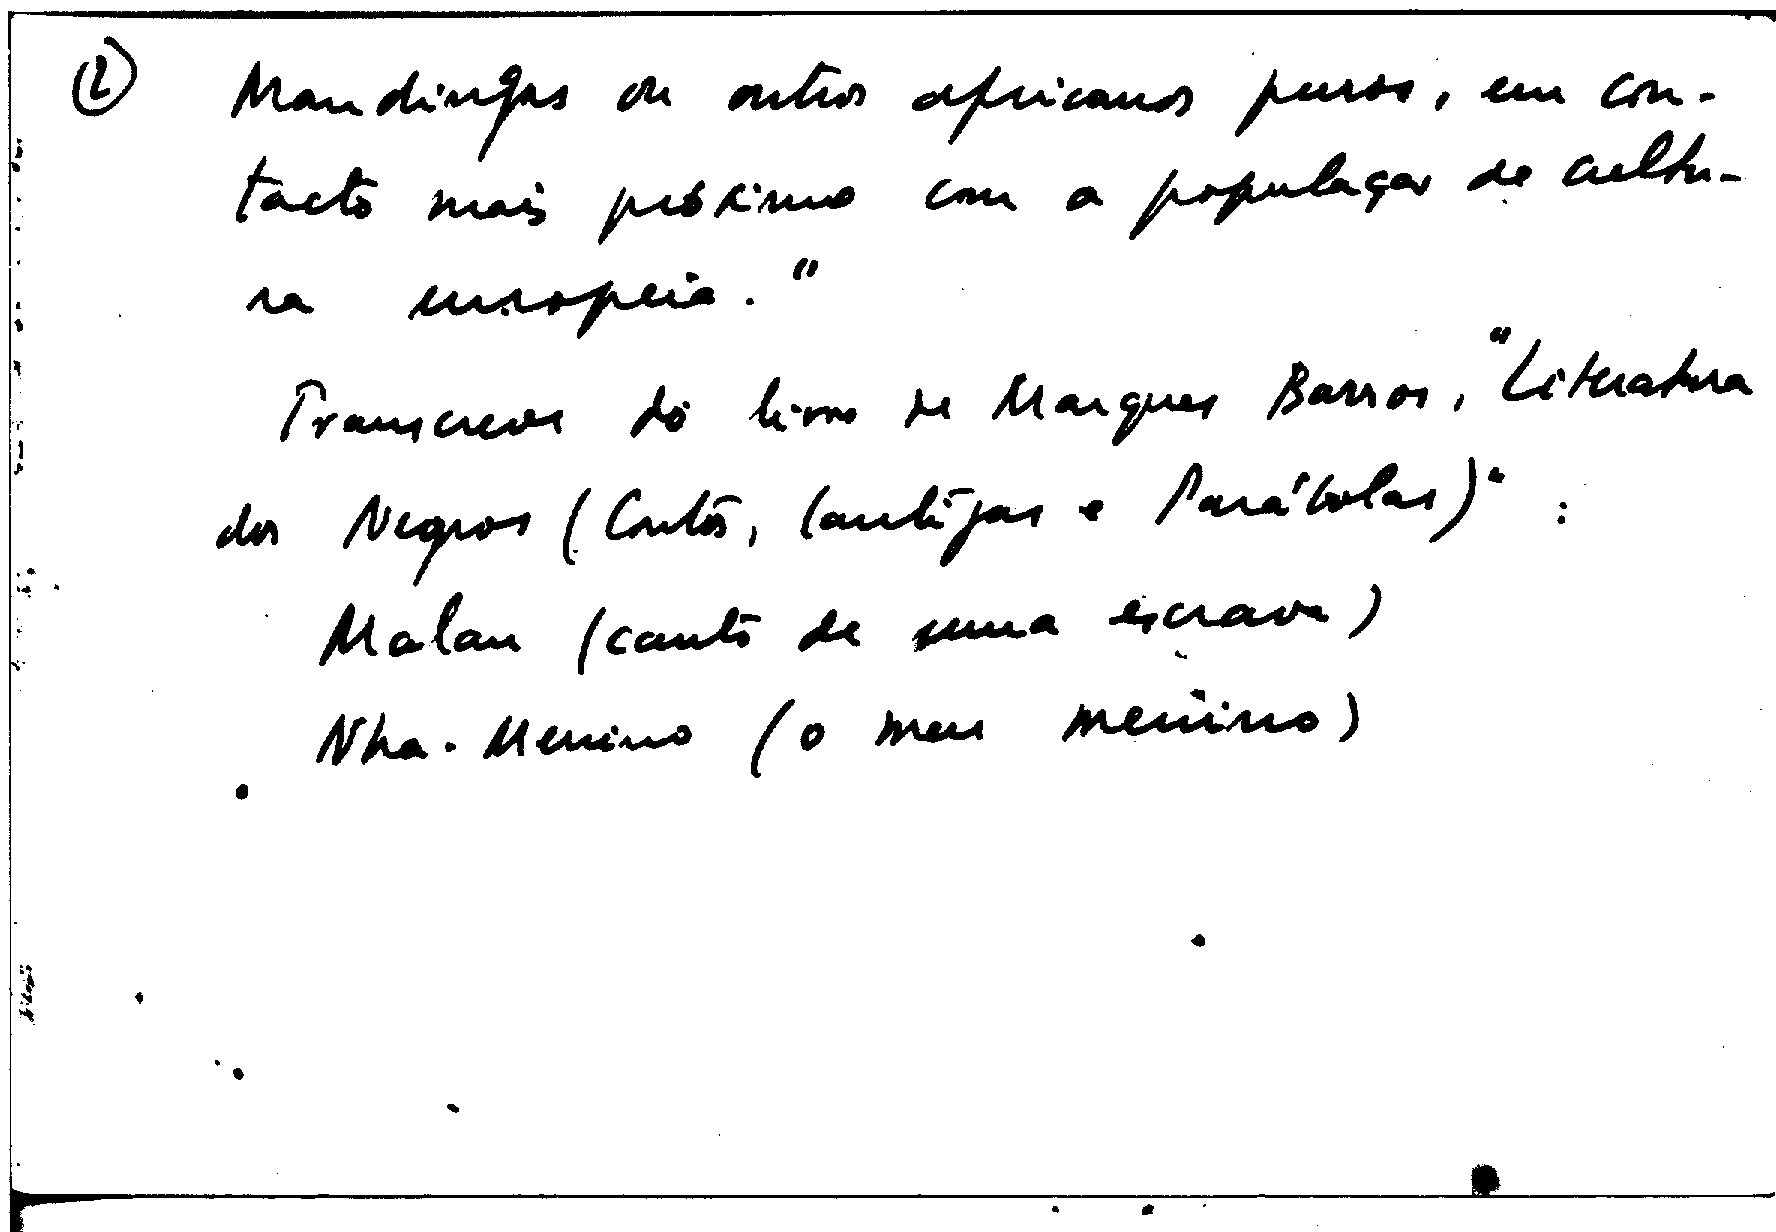 ② Mandingas ou outros africanos puros, em con-
tacto mais próximo com a população de cultu-
ra europeia."
Transcreve do livro de Marques Barros, "Literatura
dos Negros (Contos, Cantigas e Parábolas)" :
Malan (canto de uma escrava)
Nha-Menino (o meu menino)